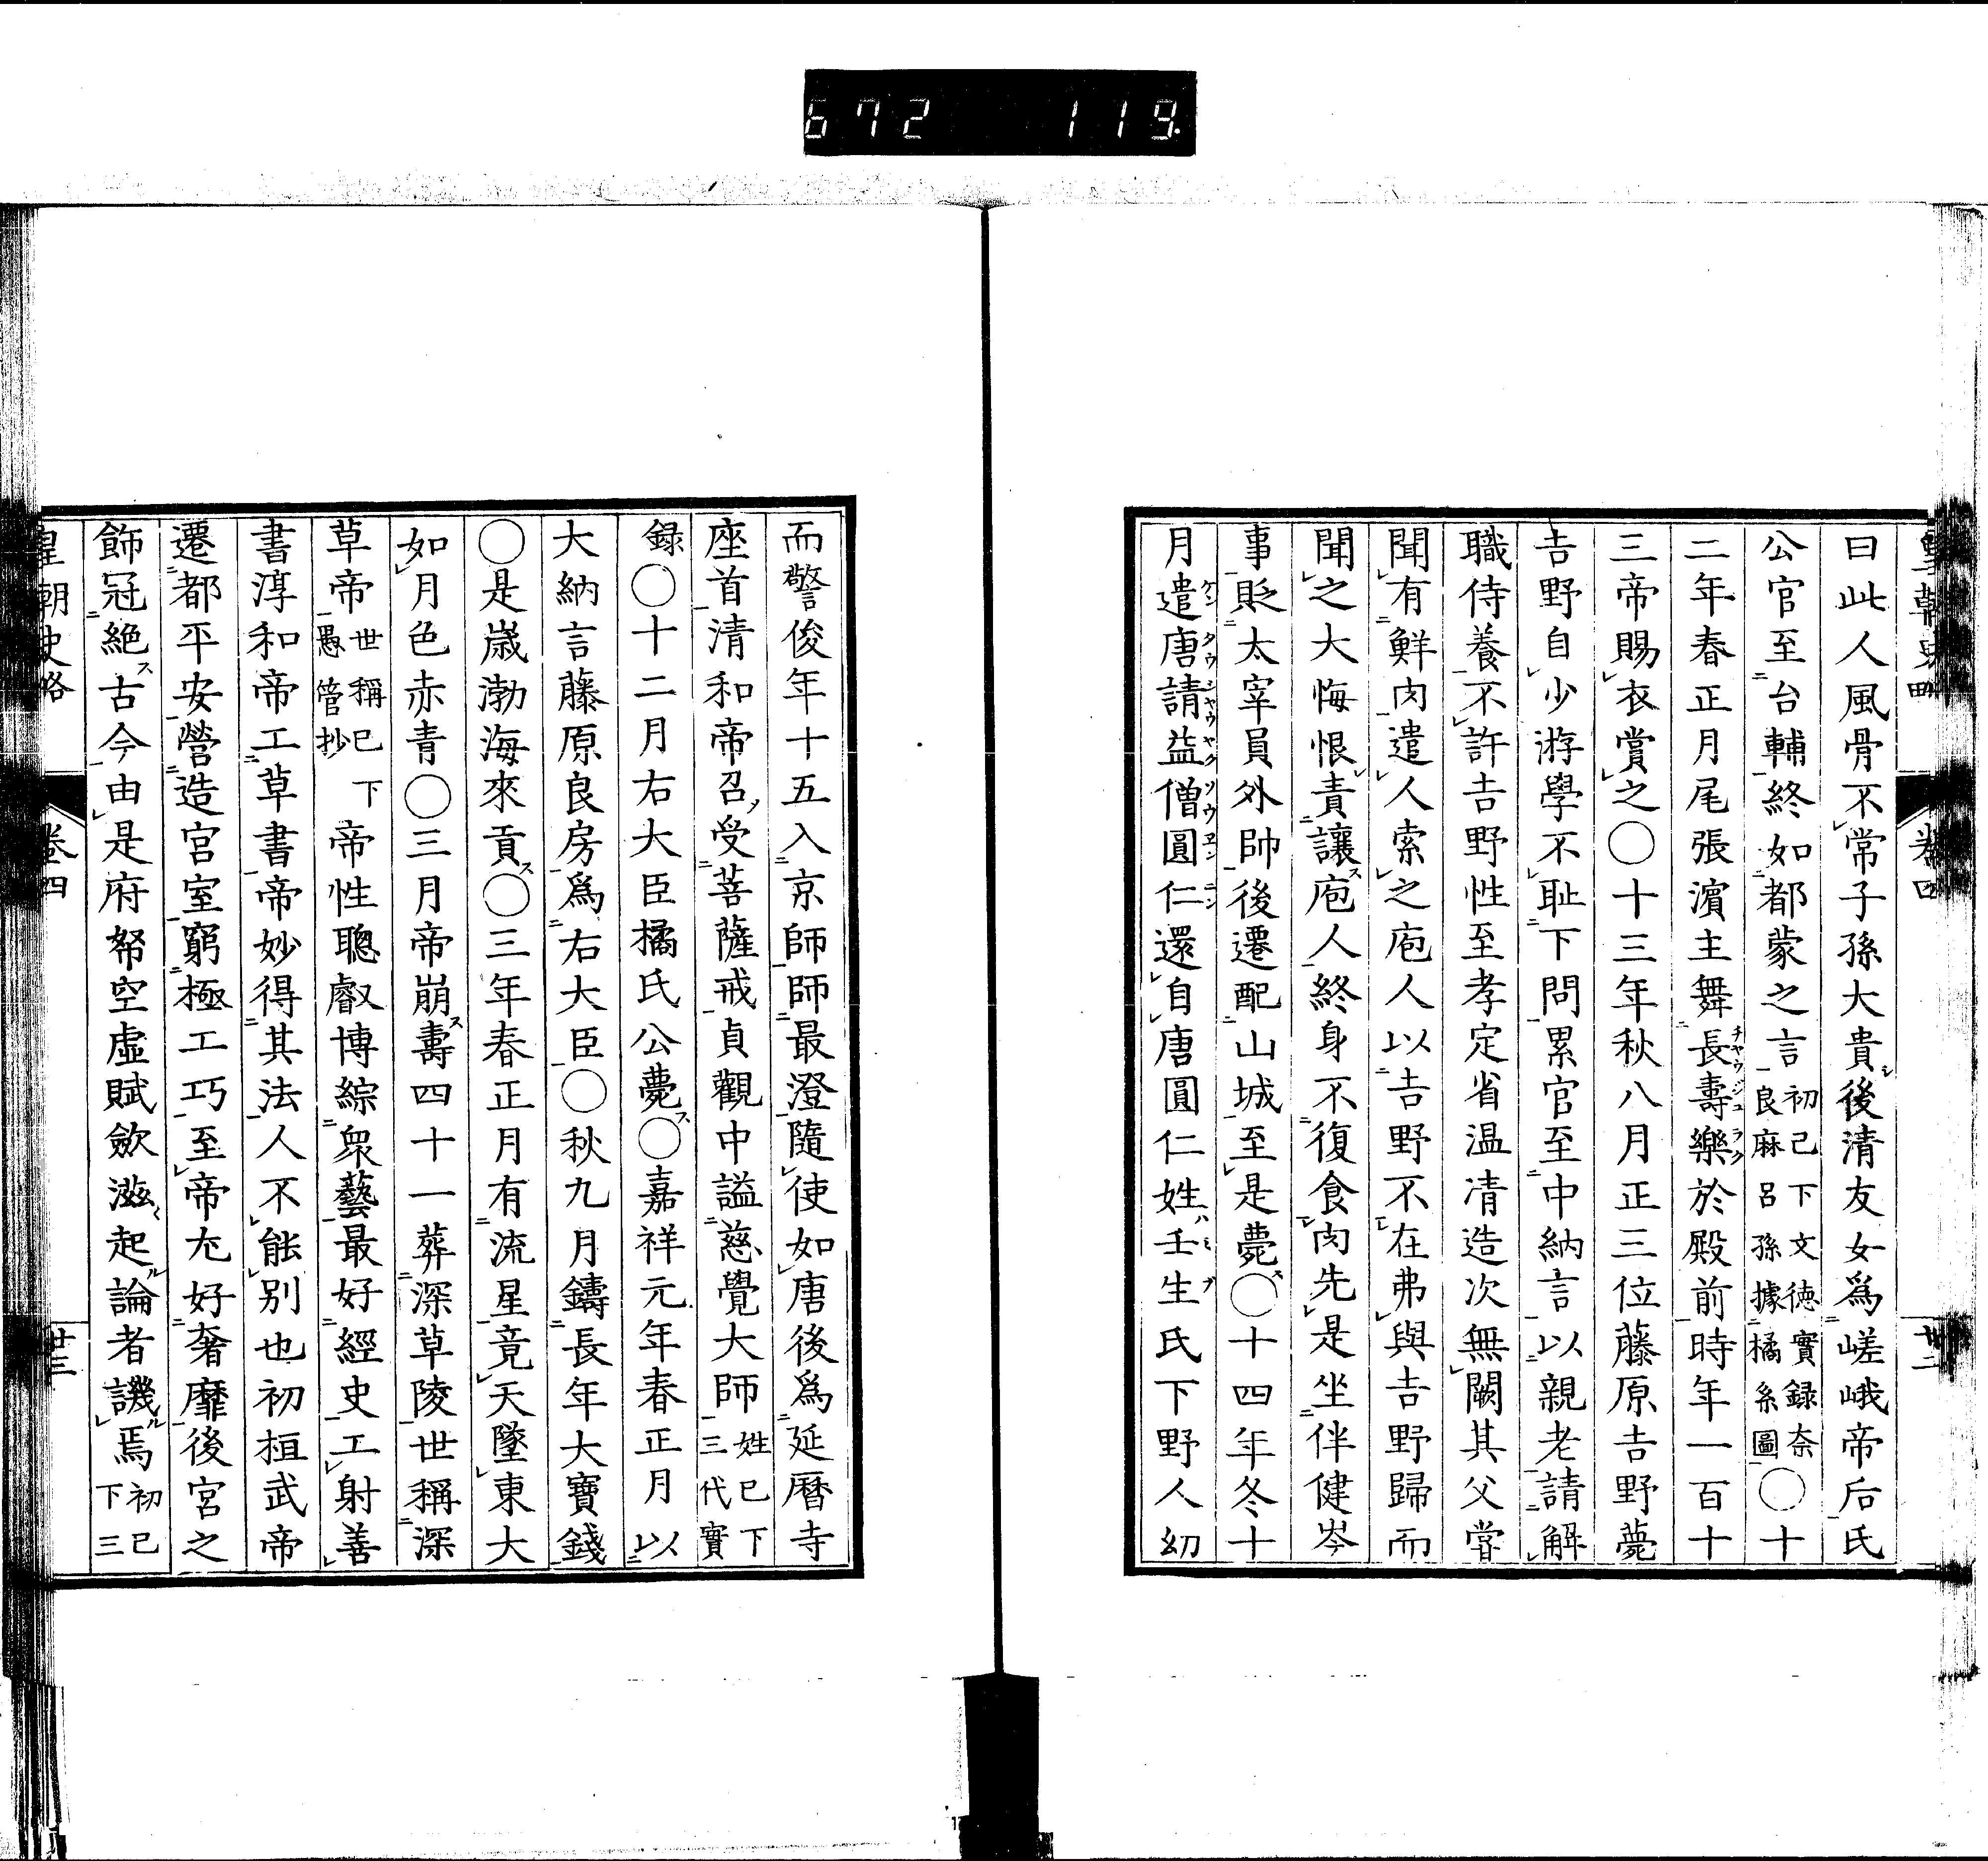 672 119.
曰此人風骨不常子孫大貴後清友女爲嵯峨帝后氏
公官至台輔終如都蒙之言初已下文徳實録奈良麻呂孫據橘系圖〇十
二年春正月尾張濱主舞長壽樂於殿前時年一百十
三帝賜衣賞之〇十三年秋八月正三位藤原吉野薨
吉野自少游學不耻下問累官至中納言以親老請解
職侍養不許吉野性至孝定省温凊造次無闕其父嘗
聞有鮮肉遣人索之庖人以吉野不在弗與吉野歸而
聞之大悔恨責讓庖人終身不復食肉先是坐伴健岑
事貶太宰員外帥後遷配山城至是薨〇十四年冬十
月遣唐請益僧圓仁還自唐圓仁姓壬生氏下野人幻
而警俊年十五入京師師最澄隨使如唐後爲延曆寺
座首清和帝召受菩薩戒貞觀中謚慈覺大師姓已下三代實
録〇十二月右大臣橘氏公薨〇嘉祥元年春正月以
大納言藤原良房爲右大臣〇秋九月鑄長年大寶錢
〇是歳渤海來貢〇三年春正月有流星竟天墜東大
如月色赤青〇三月帝崩壽四十一葬深草陵世稱深
草帝世稱已下愚管抄帝性聰叡博綜衆藝最好經史工射善
書淳和帝工草書帝妙得其法人不能別也初桓武帝
遷都平安營造宮室窮極工巧至帝尤好奢靡後宮之
飾冠絶古今由是府帑空虛賦斂滋起論者譏焉初已下三
皇朝史略 卷四 廿三